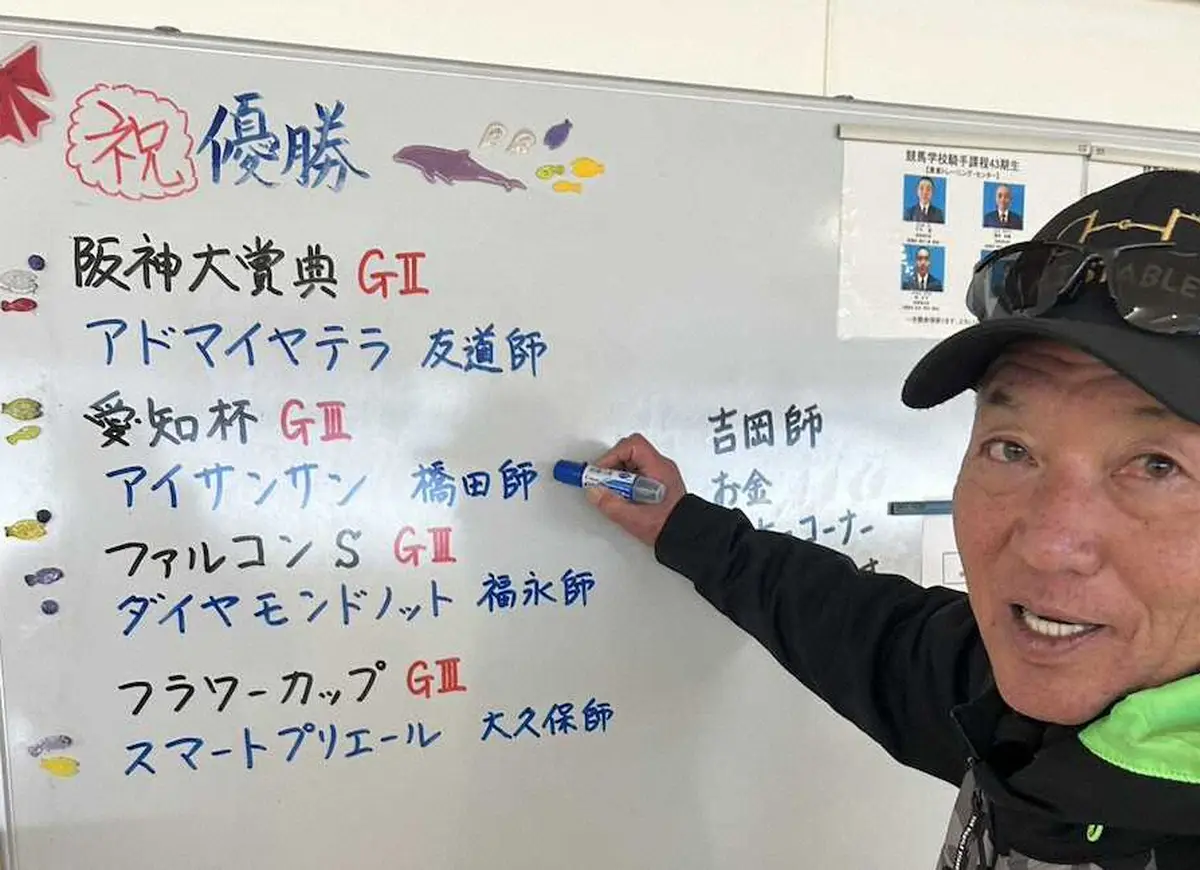 祝 優勝
阪神大賞典 GⅡ
アドマイヤテラ 友道師
愛知杯 GⅢ
アイサンサン 橋田師
ファルコンS GⅢ
ダイヤモンドノット 福永師
フラワーカップ GⅢ
スマートプリエール 大久保師
吉岡師
お金
コーナー
競馬学校騎手課程43期生
【栗東トレーニング・センター】
ABLE